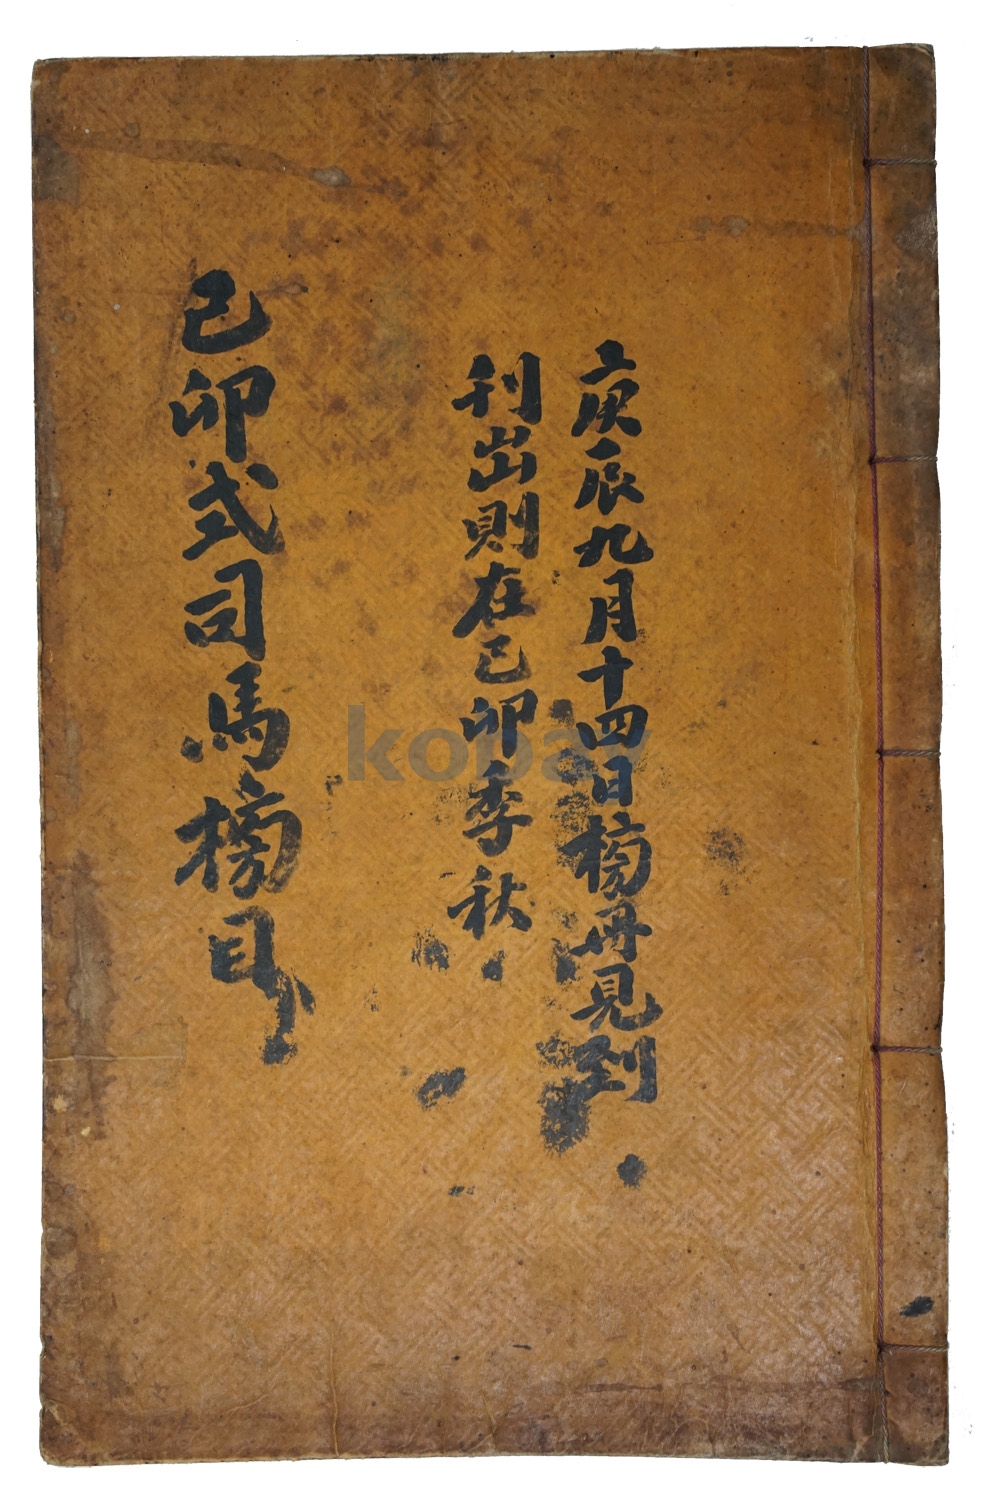 庚辰九月十四日榜冊見到
刊出則在己卯季秋
己卯式司馬榜目
kobay